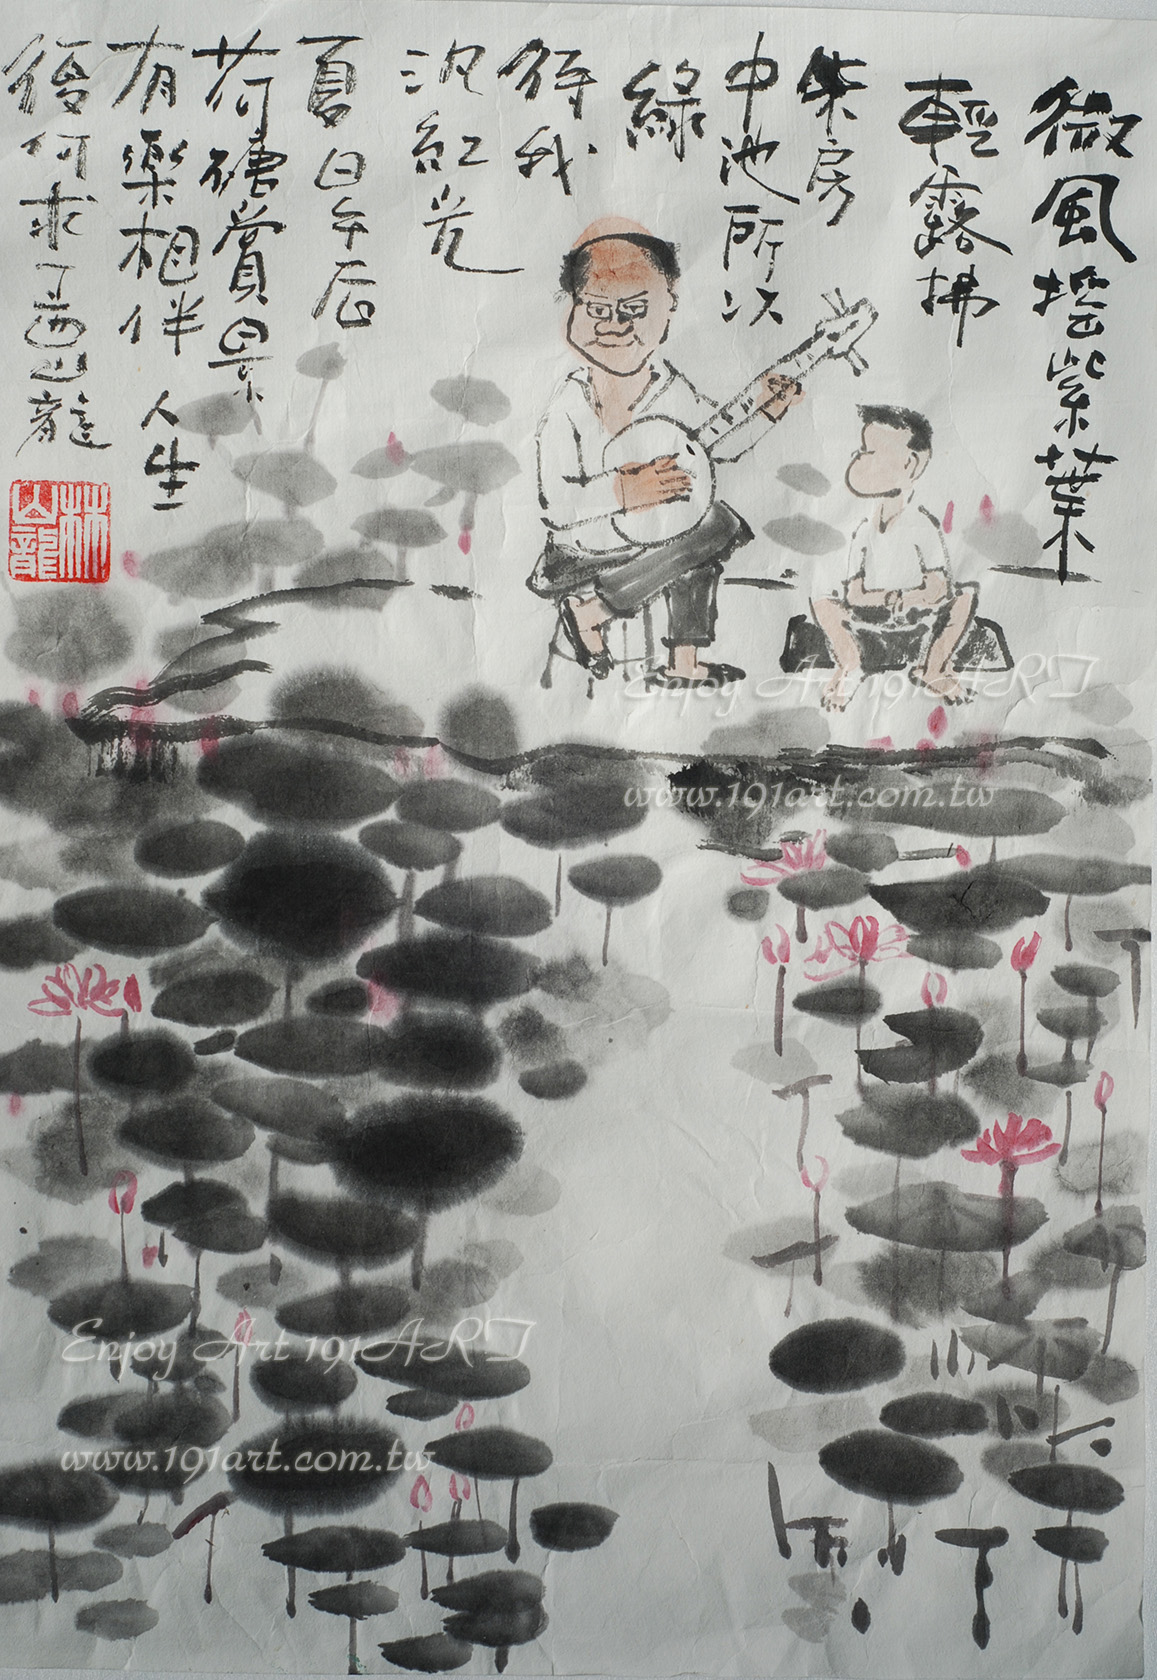 微風搖紫葉
輕露拂
朱房
中池所以
綠
待我
泛紅光
夏日午后
荷塘賞景
有樂相伴
人生
復何求 丁酉山龍
林山龍
Enjoy Art 191ART
www.191art.com.tw
Enjoy Art 191ART
www.191art.com.tw